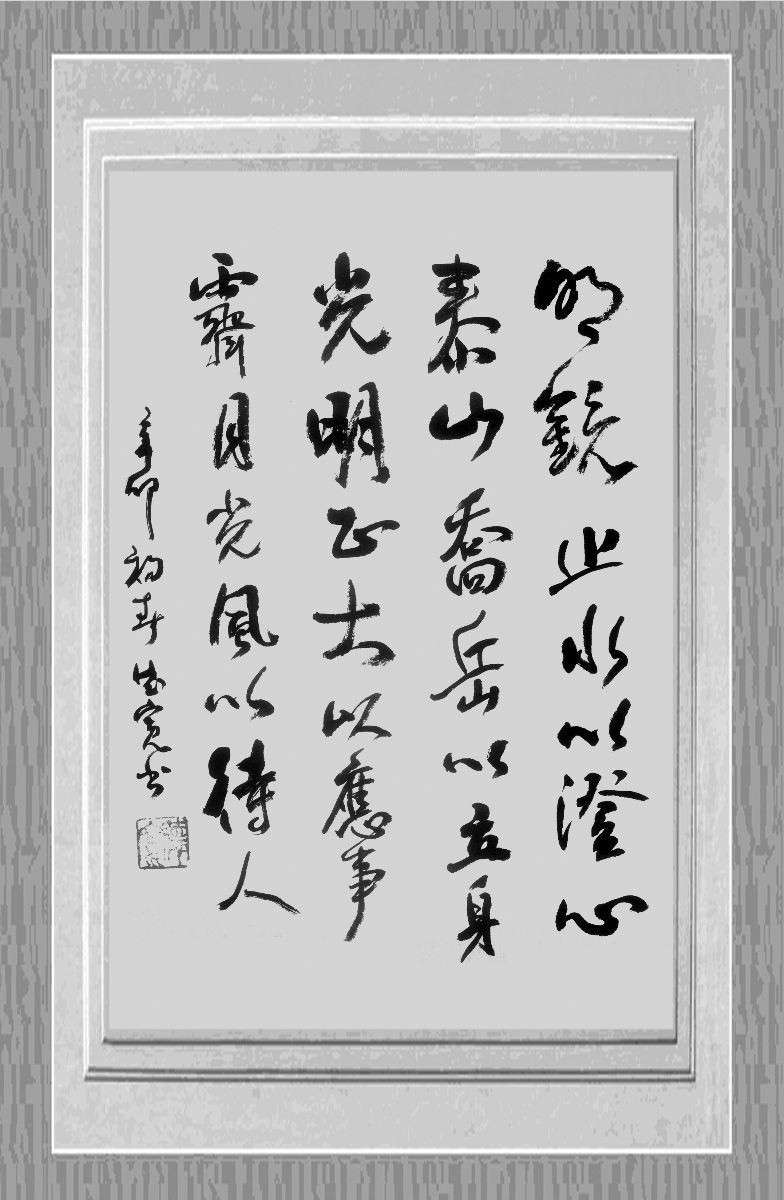 明鏡止水以澄心
泰山喬岳以立身
光明正大以應事
霽月光風以待人
辛卯初春 寬书